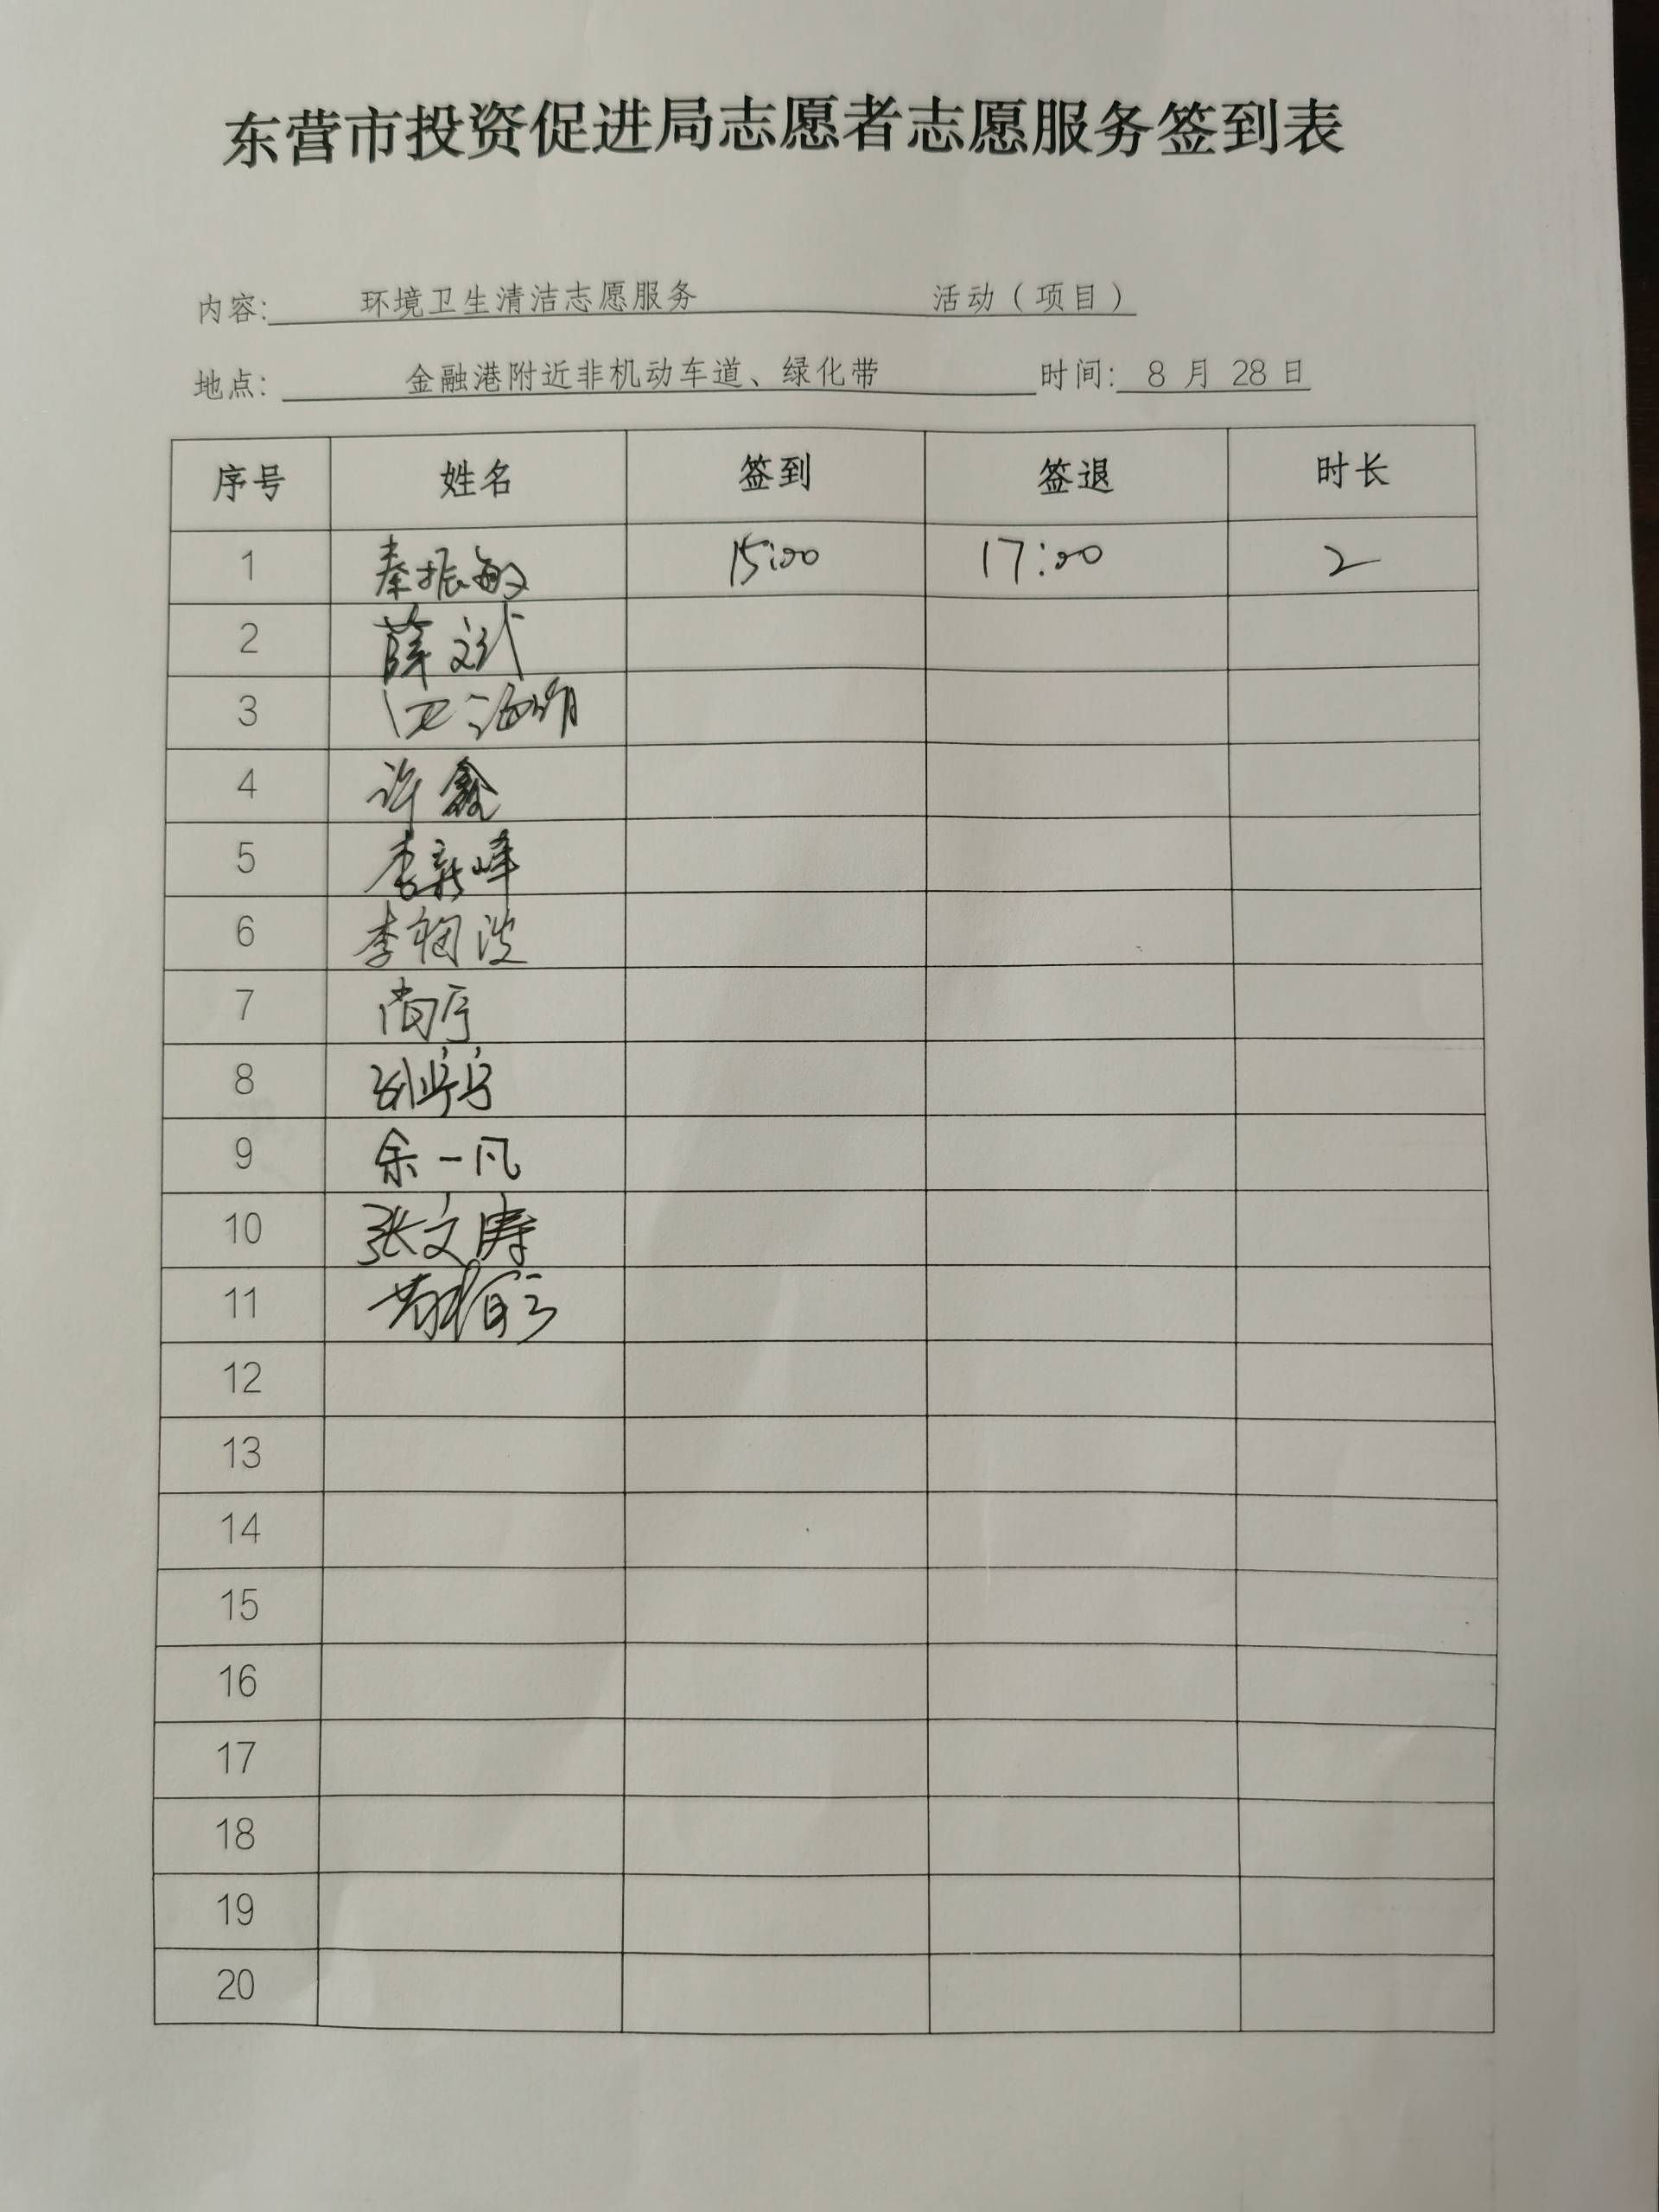 东营市投资促进局志愿者志愿服务签到表
内容: 环境卫生清洁志愿服务 活动（项目）
地点: 金融港附近非机动车道、绿化带 时间: 8 月 28 日
序号 姓名 签到 签退 时长
1 秦振敏 15:00 17:00 2
2 薛文斌
3
4 许鑫
5 李新峰
6 李相波
7 尚序
8 刘宁宁
9 余一凡
10 张文涛
11
12
13
14
15
16
17
18
19
20